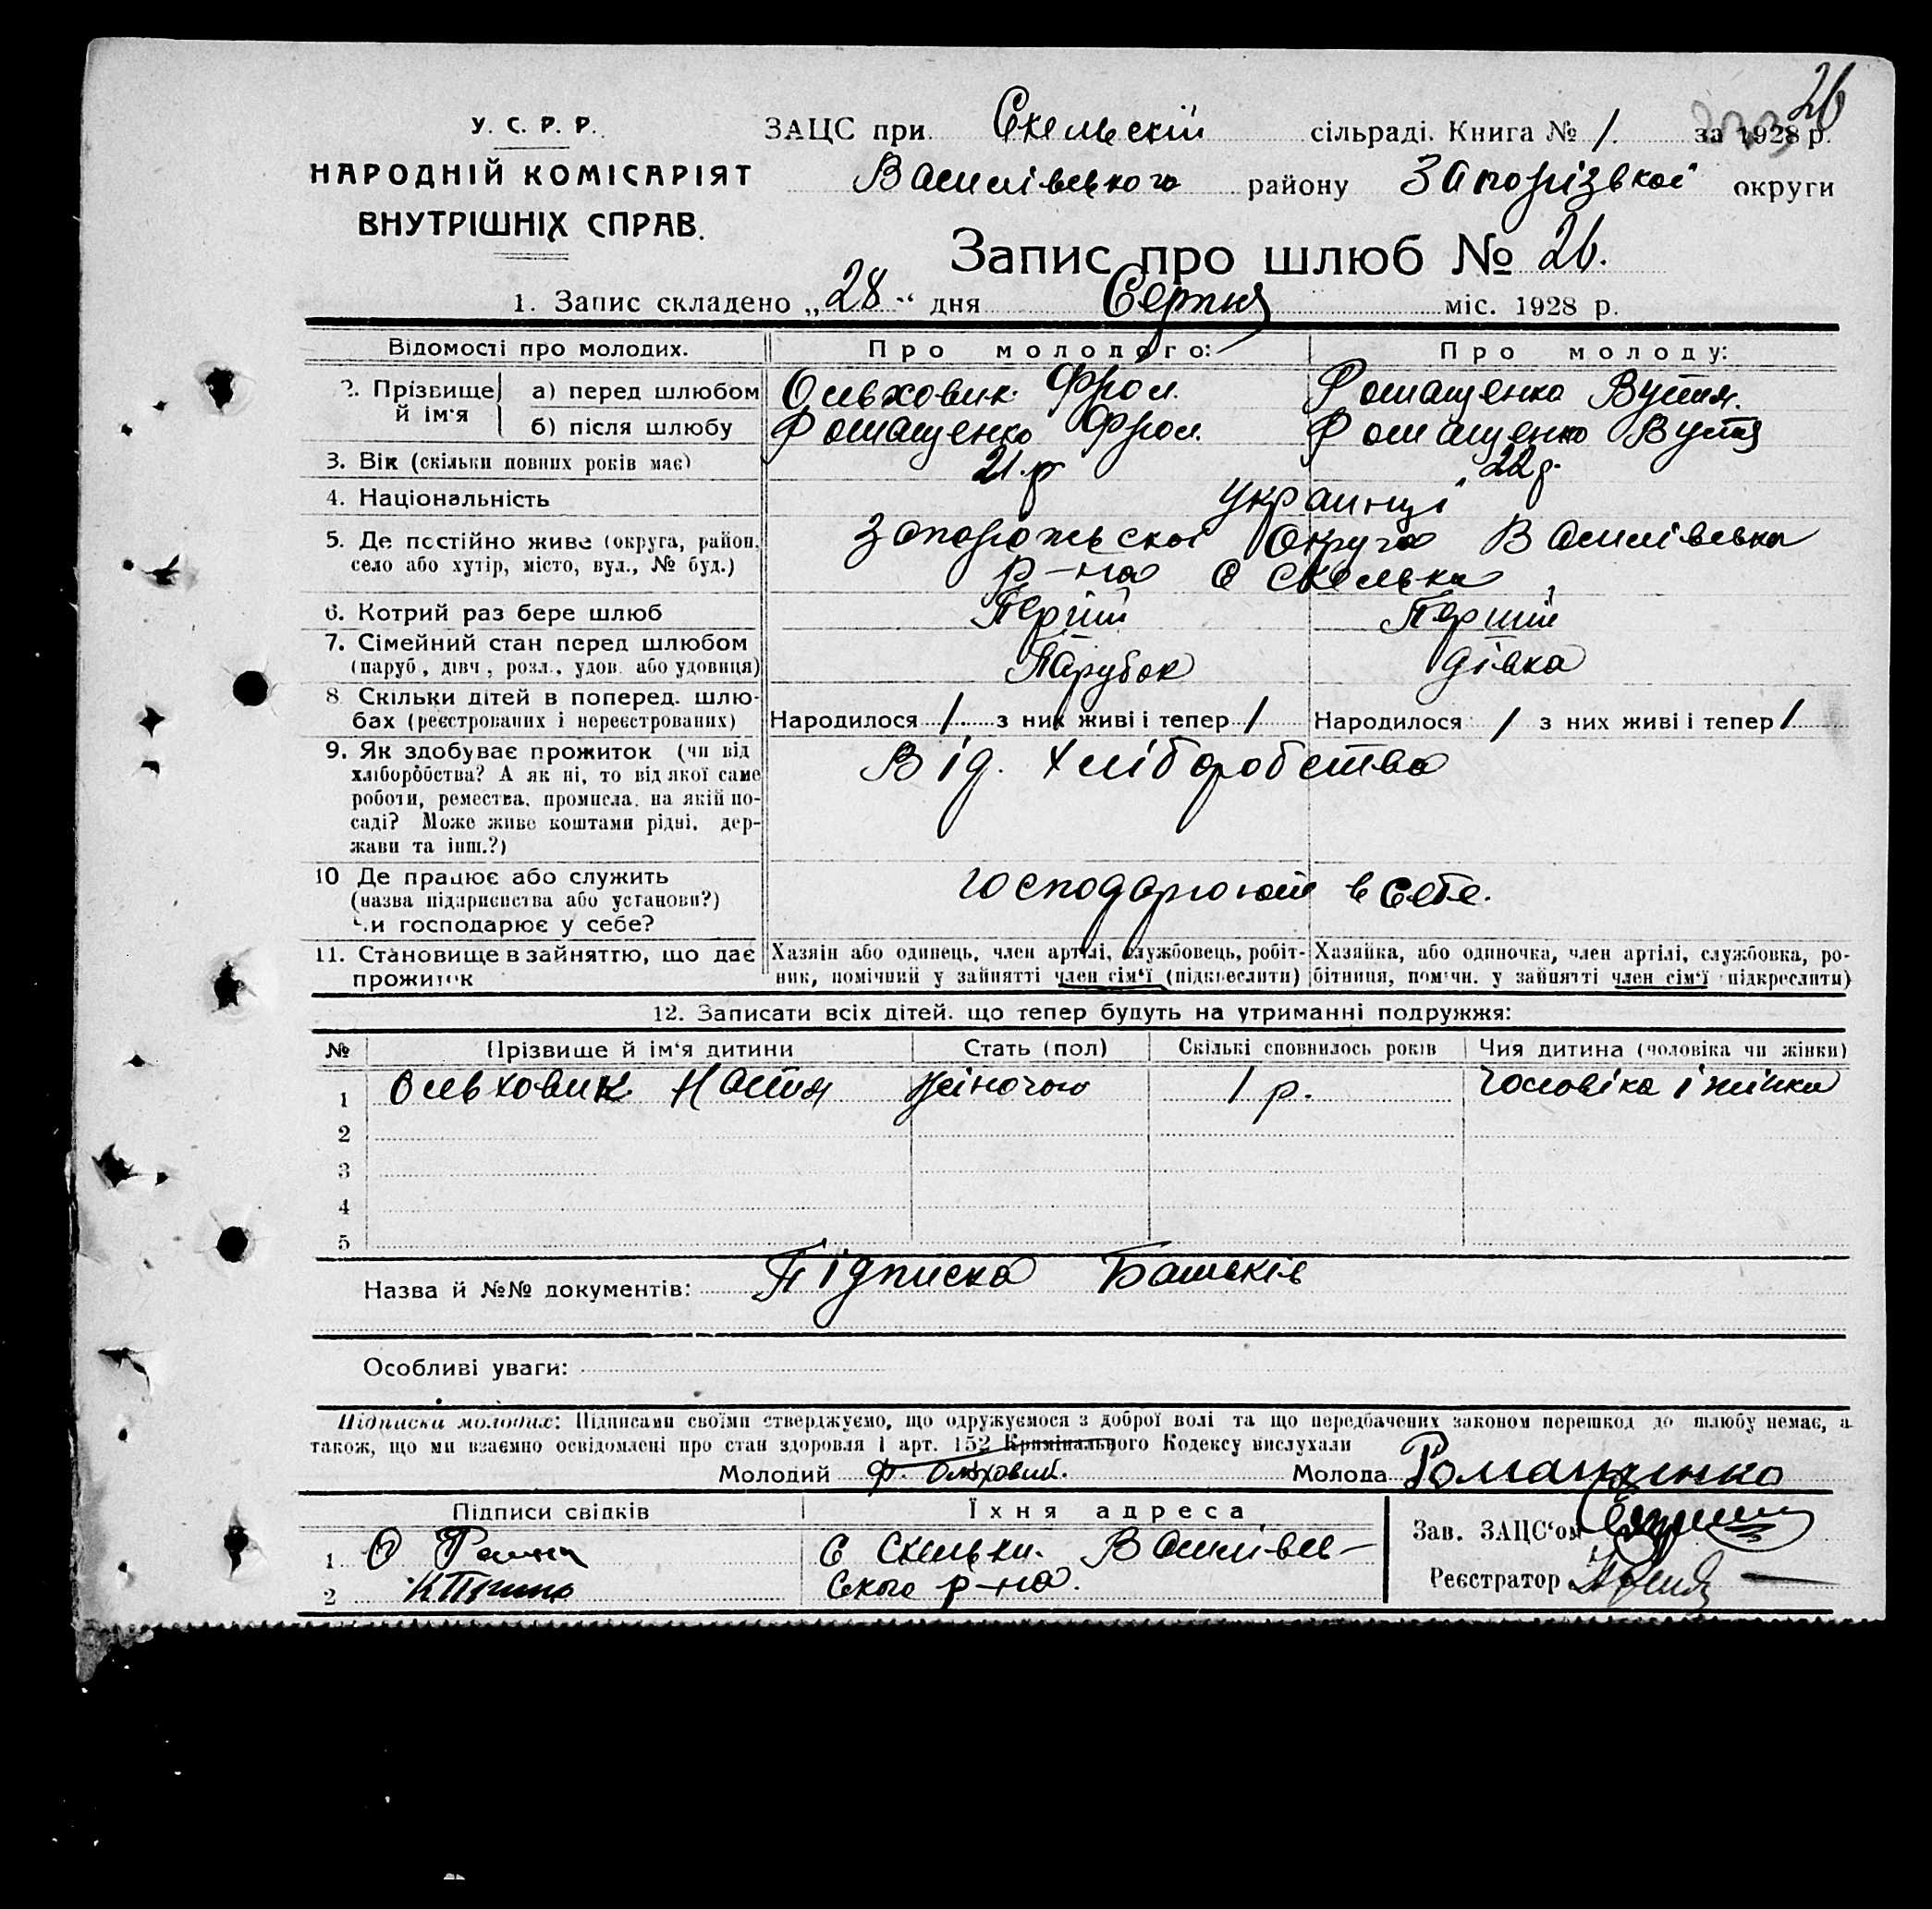 26
У. С. Р. Р.
НАРОДНІЙ КОМІСАРІЯТ
ВНУТРІШНІХ СПРАВ.
ЗАЦС при Скельскій сільраді. Книга № 1. за 1928 р.
Василівського району Запорізької округи
Запис про шлюб № 26.
1. Запис складено „28“ дня Серпня міс. 1928 р.
Відомості про молодих. Про молодого: Про молоду:
2. Прізвище й ім'я а) перед шлюбом Ольховик Фрол. Ромащенко Вустя.
б) після шлюбу Ромащенко Фрол. Ромащенко Вустя
3. Вік (скільки повних років має) 21 р 22 р.
4. Національність Украинці
5. Де постійно живе (округа, район, Запорожської Округа Василівська
село або хутір, місто, вул., № буд.) р-на с Скельки
6. Котрий раз бере шлюб Перший Перший
7. Сімейний стан перед шлюбом
(паруб., дівч., розл., удов. або удовиця) Парубок дівка
8 Скільки дітей в поперед. шлю-
бах (реєстрованих і нереєстрованих) Народилося / з них живі і тепер / Народилося / з них живі і тепер /
9. Як здобуває прожиток (чи від Від. Хліборобства
хліборобства? А як ні, то від якої саме
роботи, ремества, промисла, на якій по-
саді? Може живе коштами рідні, дер-
жави та інш.?)
10 Де працює або служить
(назва підприємства або установи?) господарюють в себе.
Чи господарює у себе?
11. Становище в зайняттю, що дає Хазяїн або одинець, член артілі, службовець, робіт- Хазяйка, або одиночка, член артілі, службовка, ро-
прожиток ник, помічний у зайнятті член сім'ї (підкреслити) бітниця, помічн. у зайнятті член сім'ї (підкреслити)
12. Записати всіх дітей, що тепер будуть на утриманні подружжя:
№ Прізвище й ім'я дитини Стать (пол) Скількі сповнилось років Чия дитина (чоловіка чи жінки)
1 Ольховик Настя жіночою 1 р. чоловіка і жінки
2
3
4
5
Назва й №№ документів: Підписка Батьків
Особливі уваги:
Підписка молодих: Підписами своїми стверджуємо, що одружуємося з доброї волі та що передбачених законом перешкод до шлюбу немає, а
також, що ми взаємно освідомлені про стан здоровля і арт. 152 Кримінального Кодексу вислухали
Молодий Ф. Ольховик. Молода Ромащенко
Підписи свідків Їхня адреса Зав. ЗАЦС'ом
1 О с Скельки. Василівсь-
2 ского р-на. Реєстратор